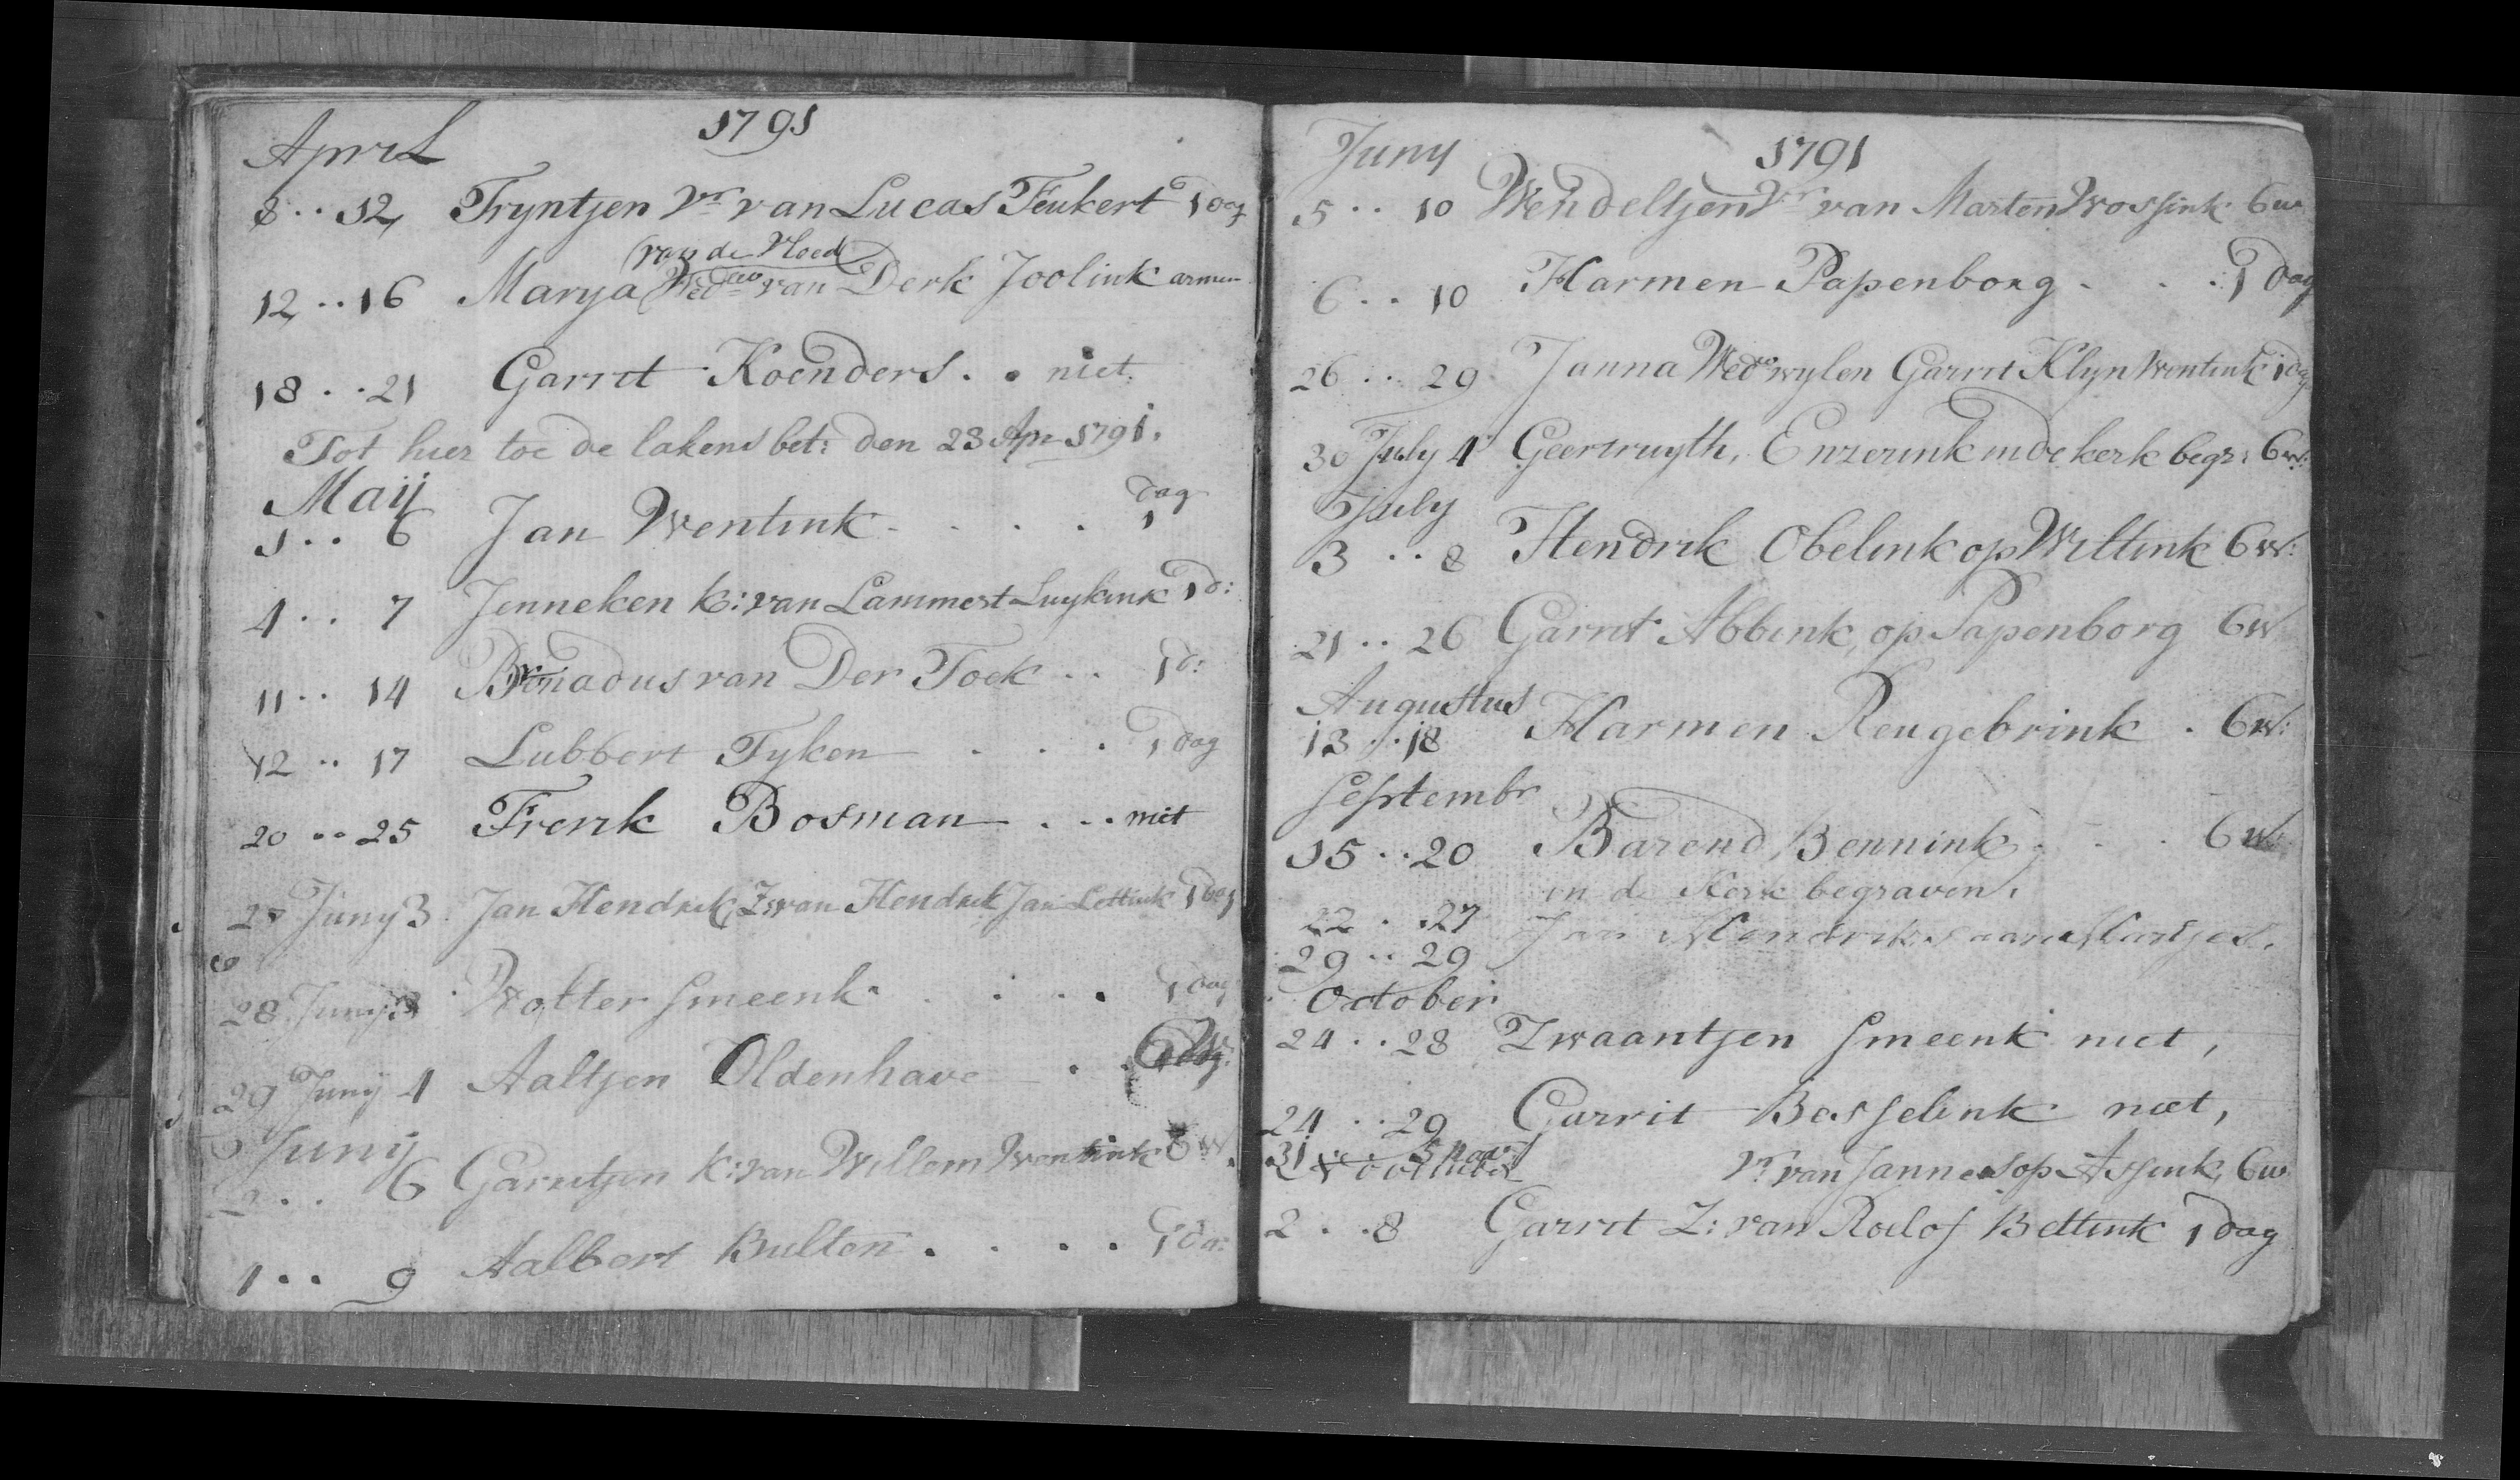 1791
April
8 .. 12 Tryntjen Vr van Lucas Teukert 1 dag
van de Vloed
12 .. 16 Marya Wedw van Derk Joolink armen
18 .. 21 Garrit Koenders . . niet
Tot hier toe de lakens bet: den 23 Apr 1791.
Maij
1 .. 6 Jan Wentink . . . . 1 dag
4 .. 7 Jenneken k: van Lammert Luykink 1 d:
11 .. 14 van Der Toek .. 1 d:
12 .. 17 Lubbert Tyken . . . 1 dag
20 .. 25 Frerik Bosman . .. niet
27 Juny 3 Jan Hendrik Z: van Hendrik Jan Lettink 1 dag
28 Juny 3 Wolter Smeenk . . . . 1 dag
29 Juny 4 Aaltjen Oldenhave . .
Juny
2 .. 6 Garritjen k: van Willem Wentink 6 w.
4 .. 9 Aalbert Bulten . . . . 1 da:
Juny 1791
5 .. 10 Wendeltjen Vr van Marten Wossink 6 w
6 .. 10 Harmen Papenborg . . . 1 dag
26 .. 29 Janna Wedw wylen Garrit Klyn Wentink 1 dag
30 July 4 Geertruyth, Enzerink in de kerk begr: 6 w:
July
3 .. 8 Hendrik Obelink op Wiltink 6 w:
21 .. 26 Garrit Abbink, op Papenborg 6 w
Augustus
13 .. 18 Harmen Reugebrink . 6 w:
Septembr
15 .. 20 Barend Bennink . . . 6 w:
in de Kerk begraven.
22 . . 27 Jan Hendriks
29 .. 29
October
24 .. 28 Zwaantjen Smeenk niet,
24 .. 29 Garrit Besselink niet,
31 .. 5 nov Vr van Jannes op Assink, 6 w
November
2 . . 8 Garrit Z: van Roelof Bettink 1 dag